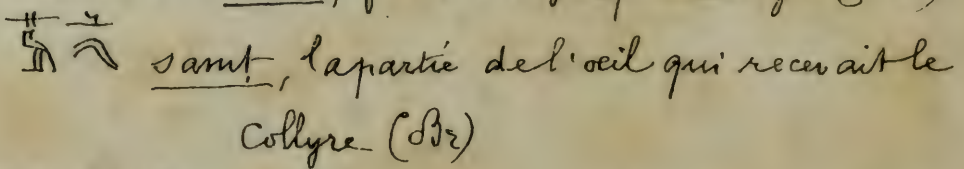 samt, la partie de l'oeil qui recevait le
Collyre (Br)